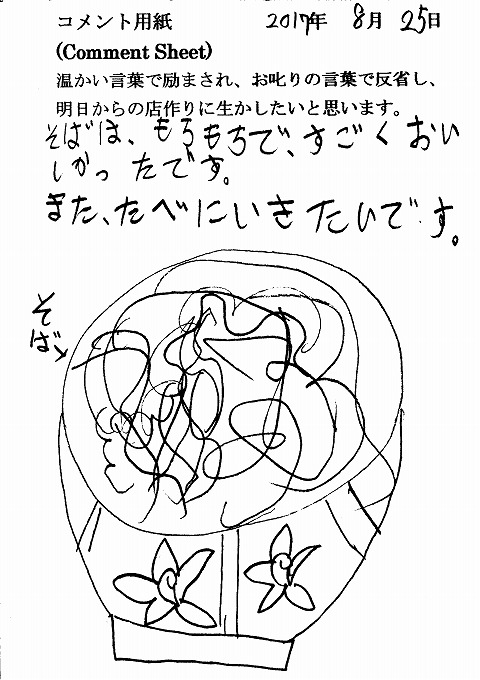 コメント用紙 2017年 8月 25日
(Comment Sheet)
温かい言葉で励まされ、お叱りの言葉で反省し、
明日からの店作りに生かしたいと思います。
そばは、もちもちで、すごくおい
しかったです。
また、たべにいきたいです。
そば